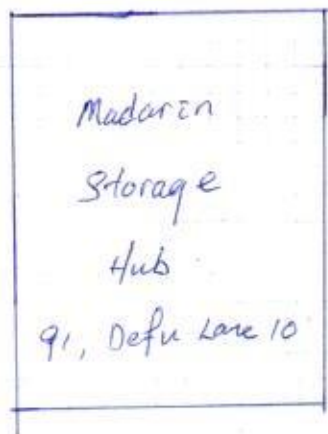 Madarin
Storage
Hub
91, Defu Lane 10